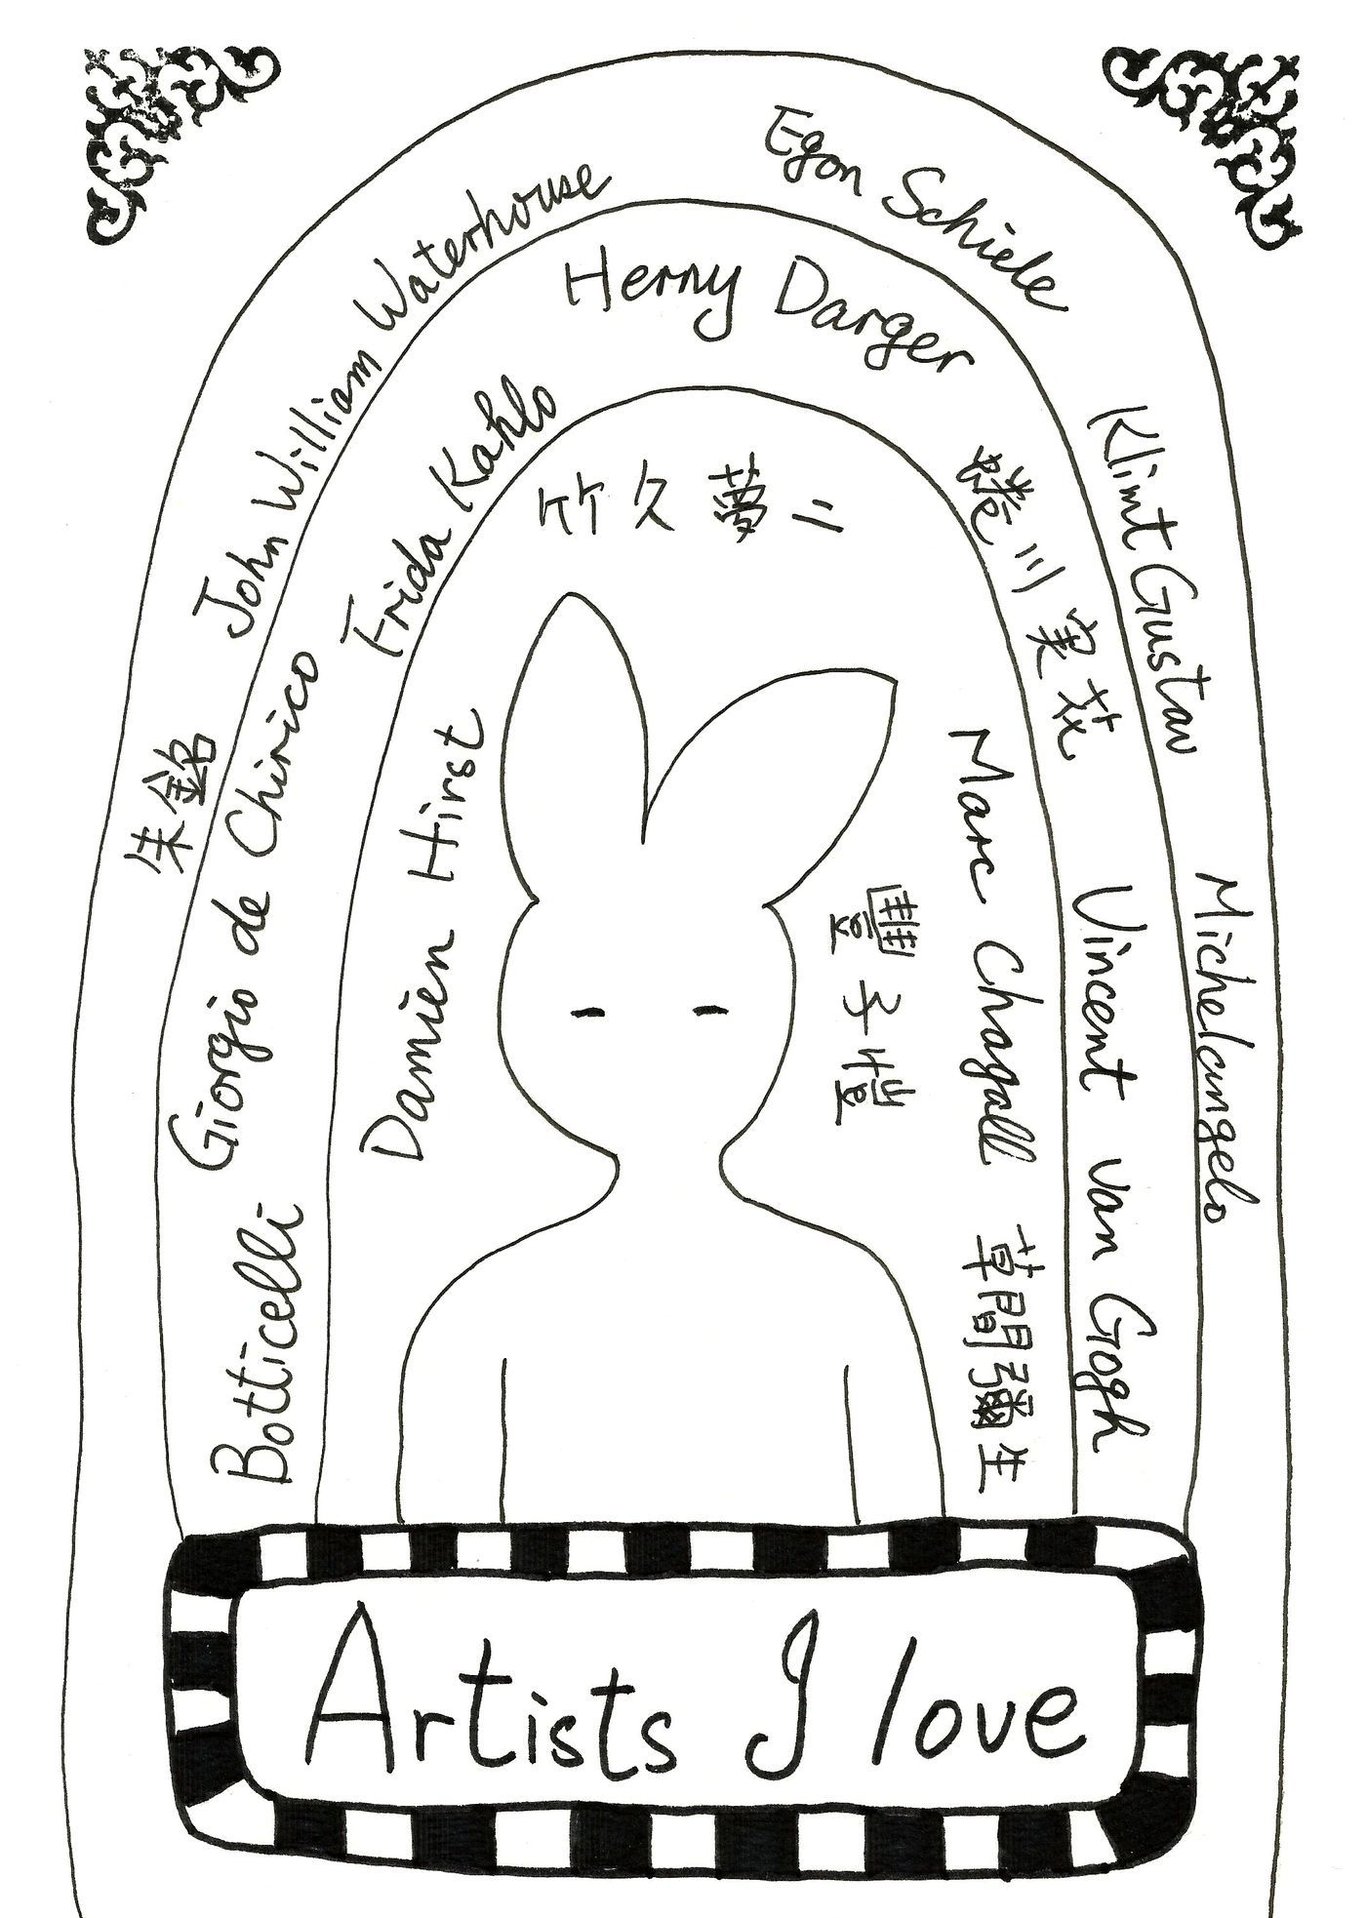 朱銘
John William Waterhouse
Egon Schiele
Klimt Gustav
Michelangelo
Botticelli
Giorgio de Chirico
Frida Kahlo
Herny Darger
蜷川実花
Vincent van Gogh
Damien Hirst
竹久夢二
Marc Chagall
草間彌生
豐子愷
Artists I love